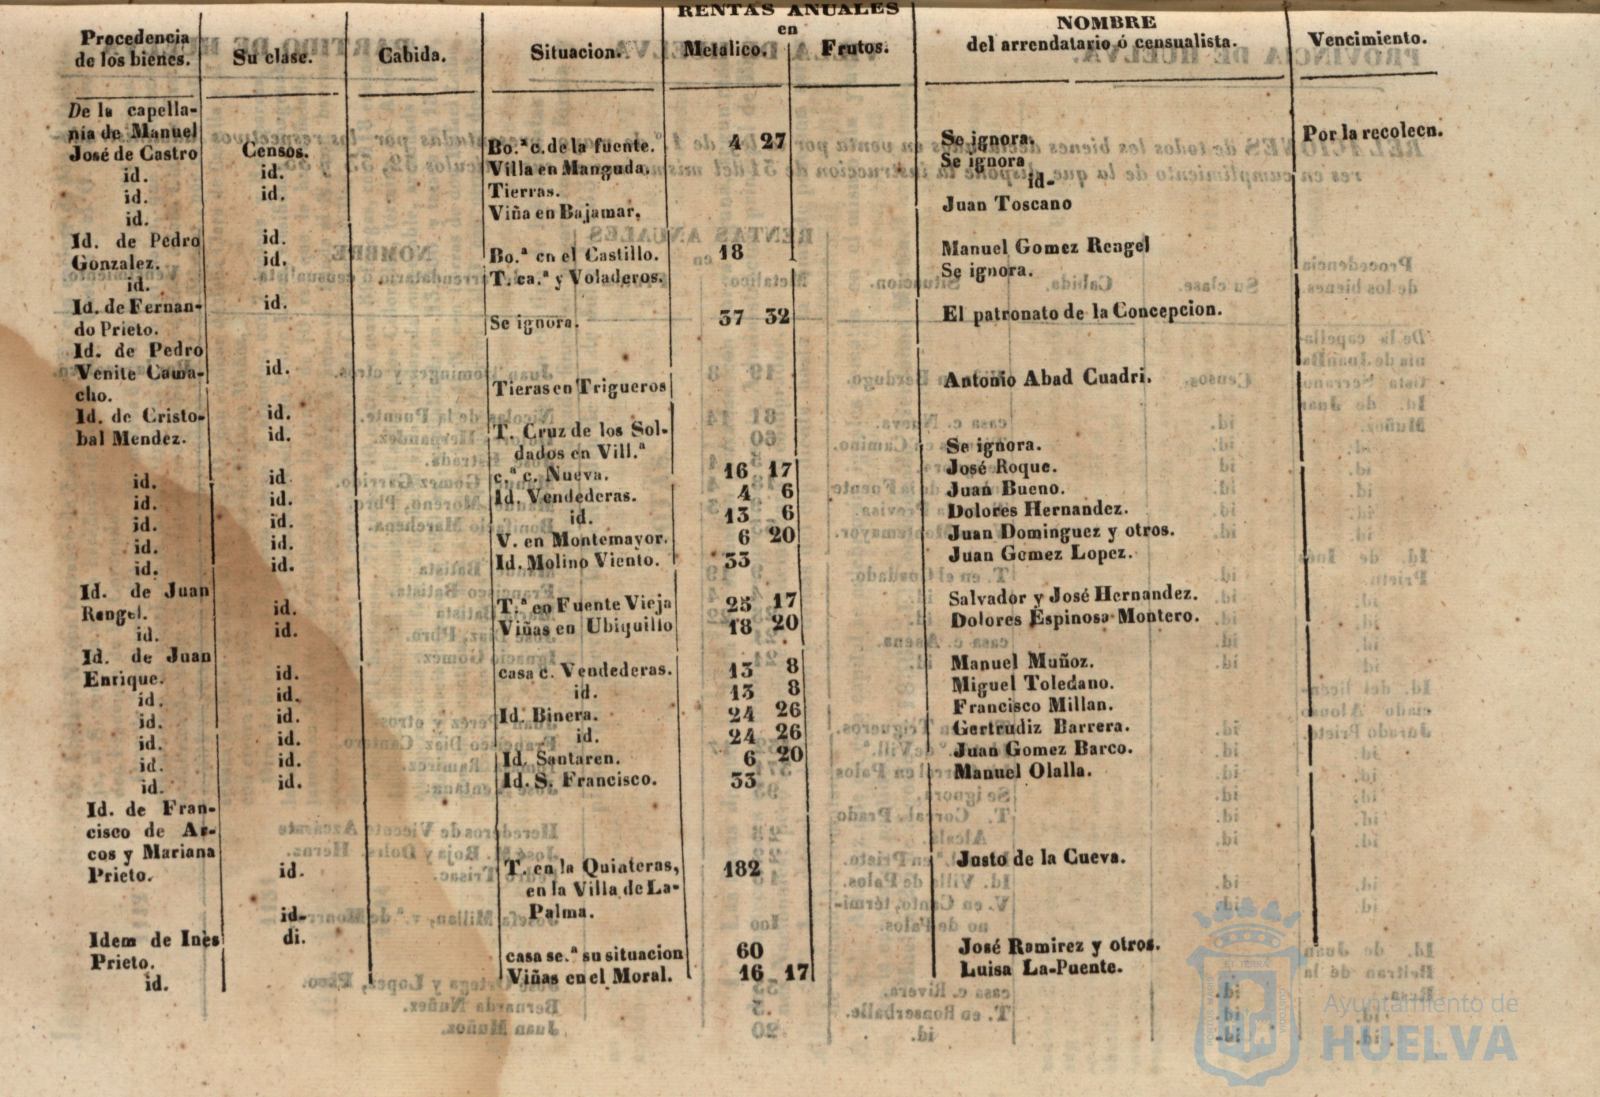 RENTAS ANUALES
Procedencia de los bienes. Su clase. Cabida. Situacion. en Metalico. Frutos. NOMBRE del arrendatario ó censualista. Vencimiento.
De la capella-
nía de Manuel Bo.ª c. de la fuente. 4 27 Se ignora. Por la recolecn.
José de Castro Censos. Villa en Manguda. Se ignora
id. id. Tierras. id-
id. id. Viña en Bajamar. Juan Toscano
id.
Id. de Pedro id. Bo.ª en el Castillo. 18 Manuel Gomez Rengel
Gonzalez. id. T. ca.ª y Voladeros. Se ignora.
id.
Id. de Fernan- id. Se ignora. 37 32 El patronato de la Concepcion.
do Prieto.
Id. de Pedro
Venite Cama- id. Tieras en Trigueros Antonio Abad Cuadri.
cho.
Id. de Cristo- id. T. Cruz de los Sol-
bal Mendez. id. dados en Vill.ª Se ignora.
id. id c.ª c. Nueva. 16 17 José Roque.
id. id. Id. Vendederas. 4 6 Juan Bueno.
id. id. id. 13 6 Dolores Hernandez.
id. id. V. en Montemayor. 6 20 Juan Dominguez y otros.
id. id. Id. Molino Viento. 33 Juan Gomez Lopez.
Id. de Juan
Rengel. id. T.ª en Fuente Vieja 25 17 Salvador y José Hernandez.
id. id. Viñas en Ubiquillo 18 20 Dolores Espinosa Montero.
Id. de Juan
Enrique. id. casa c. Vendederas. 13 8 Manuel Muñoz.
id. id. id. 13 8 Miguel Toledano.
id. id. Id. Binera. 24 26 Francisco Millan.
id. id. id. 24 26 Gertrudiz Barrera.
id. id. Id. Santaren. 6 20 Juan Gomez Barco.
id. id. Id. S. Francisco. 33 Manuel Olalla.
Id. de Fran-
cisco de Ar-
cos y Mariana
Prieto. id. T. en la Quiateras, 182 Justo de la Cueva.
en la Villa de La-
id- Palma.
Idem de Inès di. casa se.ª su situacion 60 José Ramirez y otros.
Prieto. Viñas en el Moral. 16 17 Luisa La-Puente.
id.
Ayuntamiento de
HUELVA